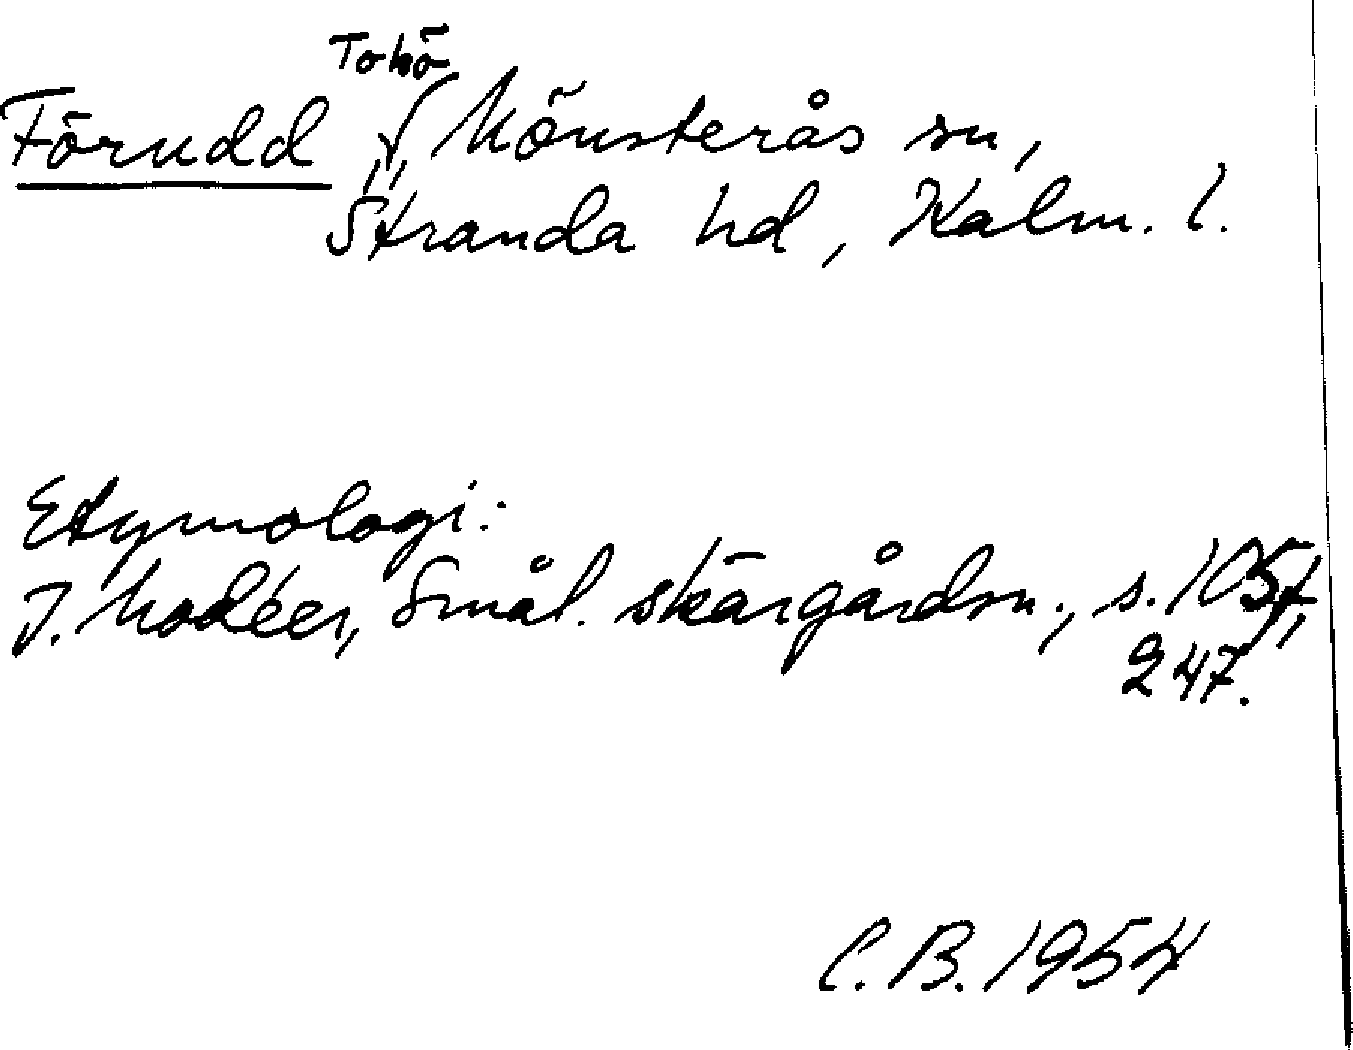 Tokö
Förudd ,, Mönsterås sn,
Stranda hd, Kalm. l.
Etymologi:
I. Modéer, Smål. skärgårdsn., s. 105f,
247.
C.B. 1954